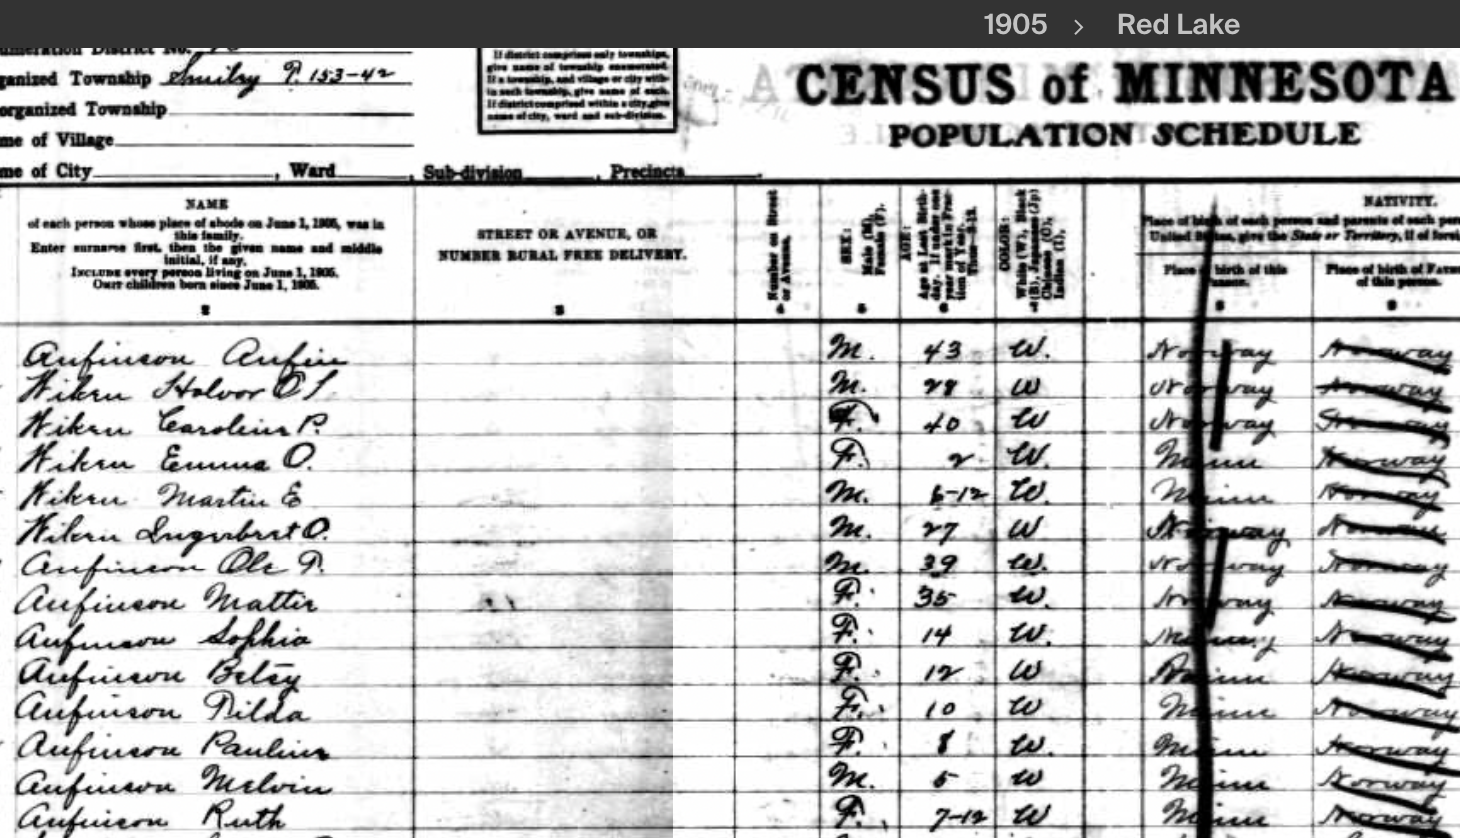 1905 > Red Lake
ganized Township Smiley T. 153-42
organized Township
me of Village
me of City , Ward , Sub-division , Precincts .
If district comprises only townships,
give name of township enumerated.
If a township, and village or city with-
in such township, give name of each.
If district comprised within a city, give
name of city, ward and sub-division.
CENSUS of MINNESOTA
POPULATION SCHEDULE
NAME
of each person whose place of abode on June 1, 1905, was in
this family.
Enter surname first, then the given name and middle
initial, if any.
INCLUDE every person living on June 1, 1905.
OMIT children born since June 1, 1905.
STREET OR AVENUE, OR
NUMBER RURAL FREE DELIVERY.
Number on Street
or Avenue.
SEX:
Male (M),
Female (F).
AGE:
Age at Last Birth-
day. If under one
year mark in Frac-
tion of Year.
Thus—3-12.
COLOR:
White (W), Black
(B), Japanese (Jp)
Chinese (C),
Indian (I).
NATIVITY.
Place of birth of each person and parents of each per
United States, give the State or Territory, if of forei
Place of birth of this
Place of birth of FATHER
of this person.
Aufinson Aufin M. 43 W. Norway Norway
Wiken Halvor O M. 28 W Norway Norway
Wiken Caroline P. F. 40 W Norway Norway
Wiken Emma O. F. 2 W. Minn Norway
Wiken Martin E M. 6-12 W. Minn Norway
Wiken Ingerbret O. M. 27 W Norway Norway
Aufinson Ole T. M. 39 W. Norway Norway
Aufinson Mattie F. 35 W. Norway Norway
Aufinson Sophia F. 14 W. Norway
Aufinson Betsy F. 12 W Minn Norway
Aufinson Tilda F. 10 W Minn Norway
Aufinson Pauline F. 8 W. Minn Norway
Aufinson Melvin M. 5 W Minn Norway
Aufinson Ruth F. 7-12 W Minn Norway